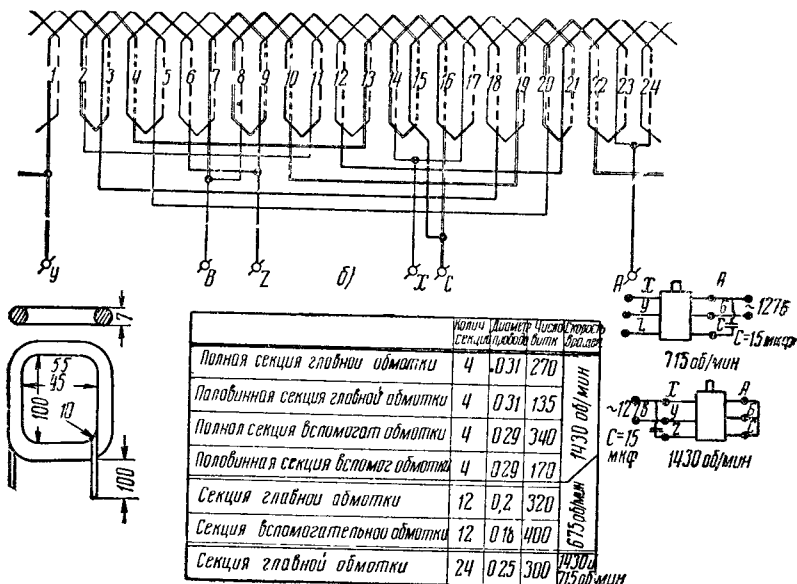 1 2 3 4 5 6 7 8 9 10 11 12 13 14 15 16 17 18 19 20 21 22 23 24
У В Z Х С А
б)
7
55
45
100
10
100
Колич секций Диамет провода Число витк Скорость вращен
Полная секция главной обмотки 4 0.31 270
Половинная секция главной обмотки 4 0.31 135
Полная секция вспомогат обмотки 4 0.29 340
Половинная секция вспомог обмотки 4 0.29 170
1430 об/мин
Секция главной обмотки 12 0,2 320
Секция вспомогательной обмотки 12 0.18 400
675 об/мин
Секция главной обмотки 24 0.25 300 1430 и 715 об-мин
Х А
У Б ~127в
Z С С=1.5 мкф
715 об/мин
~127в Х А
У Б
Z С
С=15 мкф
1430 об/мин